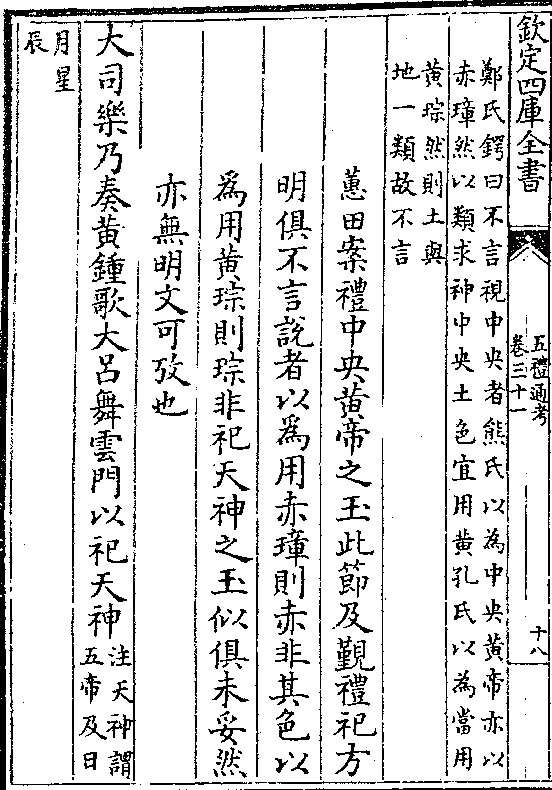 欽定四庫全書
五禮通考
卷三十一
十八
鄭氏鍔曰不言視中央者熊氏以為中央黃帝亦以
赤璋然以類求神中央土色宜用黃孔氏以為當用
黃琮然則土與
地一類故不言
蕙田案禮中央黃帝之玉此節及覲禮祀方
明俱不言說者以為用赤璋則赤非其色以
為用黃琮則琮非祀天神之玉似俱未妥然
亦無明文可攷也
大司樂乃奏黃鍾歌大呂舞雲門以祀天神
注天神謂
五帝及日
月星
辰